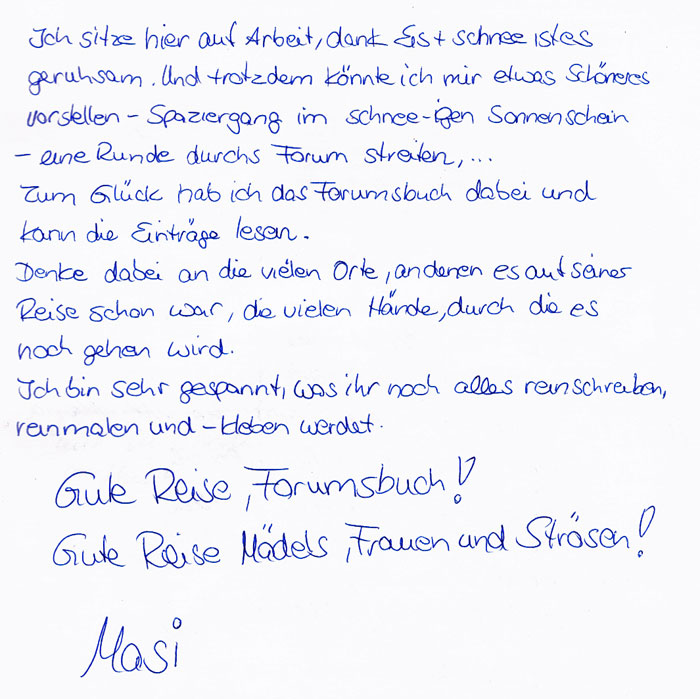 Ich sitze hier auf Arbeit, dank Eis + schnee ist es
geruhsam. Und trotzdem könnte ich mir etwas Schöneres
vorstellen - Spaziergang im schnee-igen Sonnenschein
- eine Runde durchs Forum streifen, ...
Zum Glück hab ich das Forumsbuch dabei und
kann die Einträge lesen.
Denke dabei an die vielen Orte, an denen es auf seiner
Reise schon war, die vielen Hände, durch die es
noch gehen wird.
Ich bin sehr gespannt, was ihr noch alles reinschreiben,
reinmalen und -kleben werdet.
Gute Reise, Forumsbuch!
Gute Reise Mädels, Frauen und Sträsen!
Masi